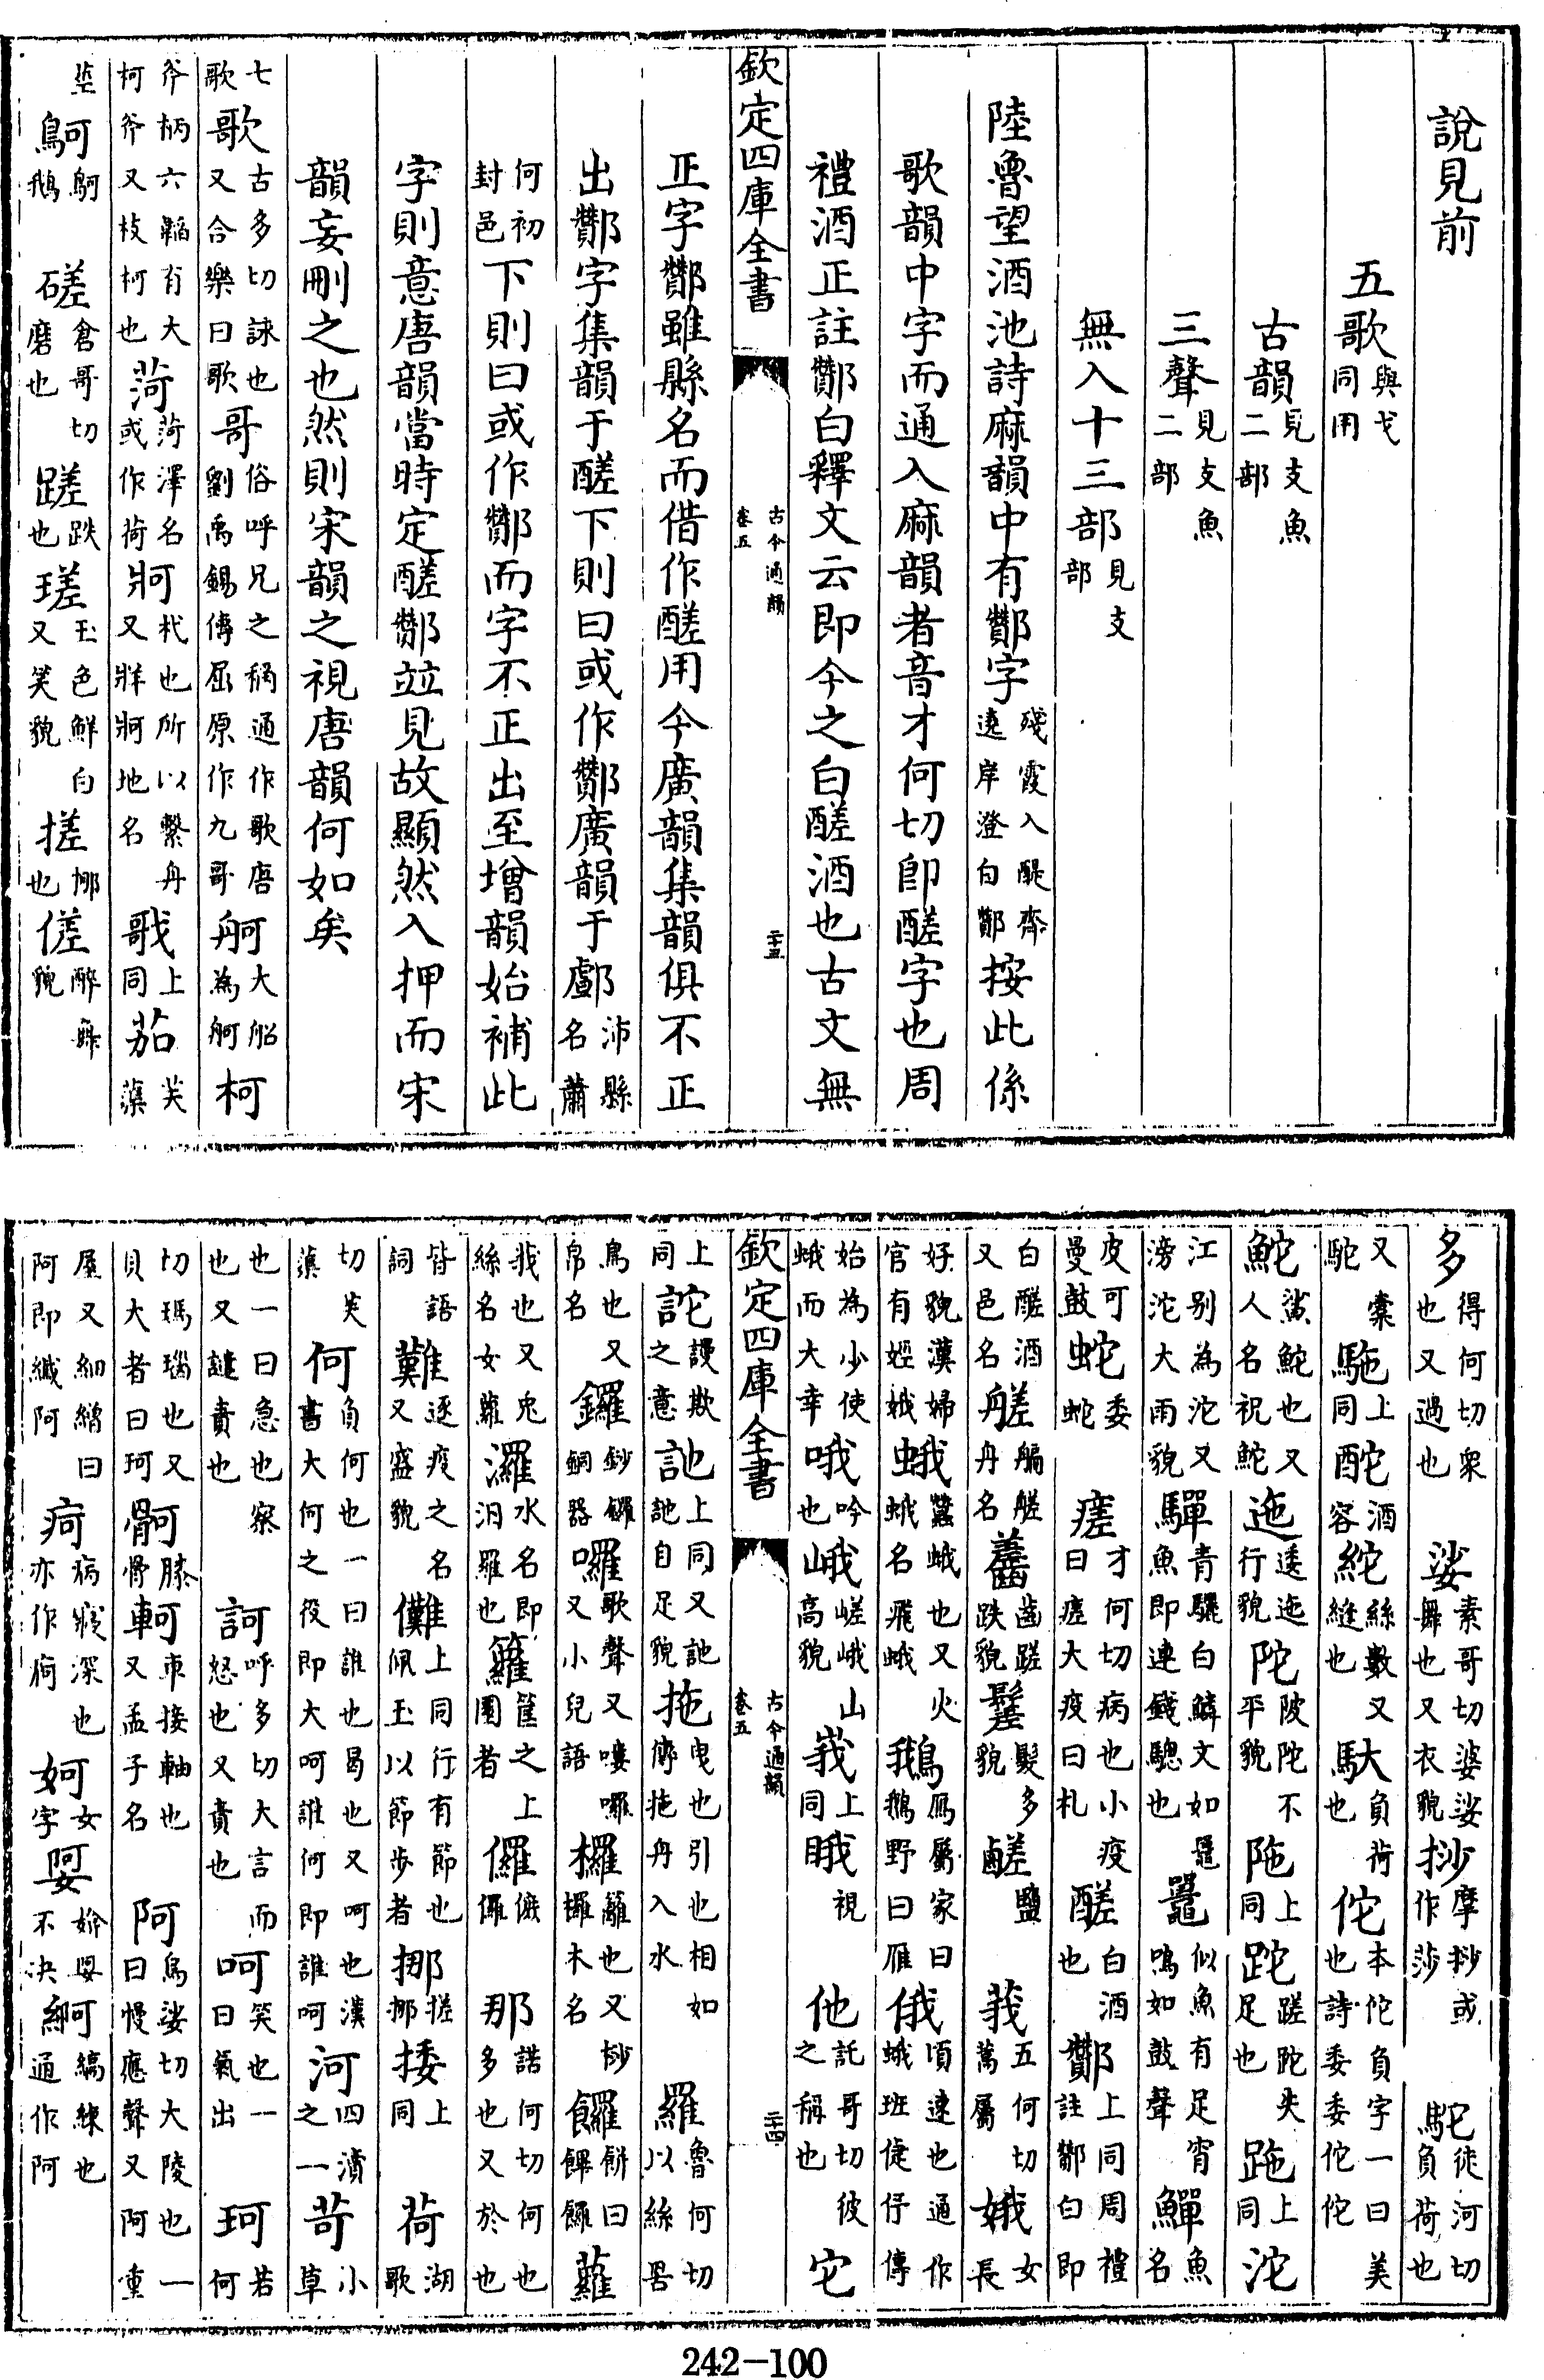 說見前
五歌與戈同用
古韻見支魚二部
三聲見支魚二部
無入十三部見支部
陸魯望酒池詩麻韻中有酇字殘霞入醍齊遠岸澄白酇按此係
歌韻中字而通入麻韻者音才何切卽醝字也周
禮酒正註酇白釋文云即今之白醝酒也古文無
欽定四庫全書 古今通韻卷五 二十三
正字酇雖縣名而借作醝用今廣韻集韻俱不正
出酇字集韻于醝下則曰或作酇廣韻于䣜沛縣名蕭
何初封邑下則曰或作酇而字不正出至增韻始補此
字則意唐韻當時定醝酇竝見故顯然入押而宋
韻妄刪之也然則宋韻之視唐韻何如矣
七歌歌古多切詠也又合樂曰歌哥俗呼兄之稱通作歌唐劉禹錫傳屈原作九哥舸大船為舸柯
斧柄六韜有大柯斧又枝柯也菏菏澤名或作荷牁杙也所以繫舟又牂牁地名上同茄芙蕖
莖鴚鴚鵝磋倉哥切磨也蹉跌也瑳玉色鮮白又笑貌搓挪也傞醉舞貌
多得何切衆也又過也娑素哥切婆娑舞也又衣貌挱摩挱或作莎駝徒河切負荷也
又橐駝駞上同酡酒容紽絲數又縫也馱負荷也佗本佗負字一曰美也詩委委佗佗
鮀鯊鮀也又人名祝鮀迤逶迤行貌陀陂陀不平貌陁上同跎蹉跎失足也跑上同沱
江别為沱又滂沱大雨貌驒青驪白鱗文如鼉魚即連錢驄也鼉似魚有足宵鳴如鼓聲鱓魚名
皮可曼鼓蛇委蛇瘥才何切病也小疫曰瘥大疫曰札醝白酒也酇上同周禮註酇白即
白醝酒又邑名艖艑艖舟名齹齒蹉跌貌鬖髮多貌鹺鹽莪五何切蘿屬娥女長
好貌漢婦官有娙娥蛾蠶蛾也又火蛾名飛蛾鵝鴈屬家曰鵝野曰雁俄頃速也通作蛾班倢伃傳
始為少使蛾而大幸哦吟也峨嵯峨山高貌峩上同睋視他託哥切彼之稱也它
欽定四庫全書 古今通韻卷五 二十四
上同詑謾欺之意訑上同又訑訑自足貌拖曳也引也相如傳拖舟入水羅魯何切以絲罟
鳥也又帛名鑼鈔鑼銅器囉歌聲又嘍囉又小兒語欏籬也又桫欏木名饠餅曰饆饠蘿
莪也又兎絲名女蘿灕水名即汨羅也籮筐之上圜者儸僂儸那諾何切何也多也又於也
皆語詞難逐疫之名又盛貌儺上同行有節也佩玉以節步者挪搓挪捼上同荷湖歌
切芙蕖何負何也一曰誰也曷也又呵也漢書大何之役即大呵誰何即誰呵河四瀆之一苛小草
也一曰急也察也又譴責也訶呼多切大言而怒也又責也呵笑也一曰氣出珂若何
切瑪瑙也又貝大者曰珂髁膝骨軻車接軸也又孟子名阿烏娑切大陵也一曰慢應聲又阿重
屋又細繒曰阿即纖阿疴病㾏深也亦作痾妸女字婀媕婀不决䋍縞練也通作阿
242-100